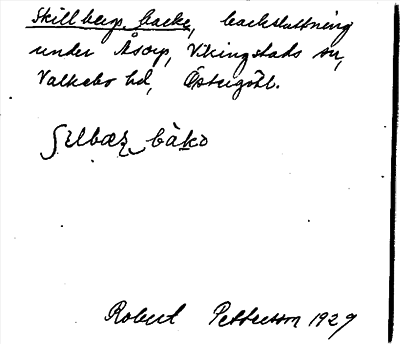 Skillbergs backe, backsluttning
under Åsorp, Vikingstads sn,
Valkebo hd, Östergötl.
ʃɩlbærʒ bàko
Robert Pettersson 1929